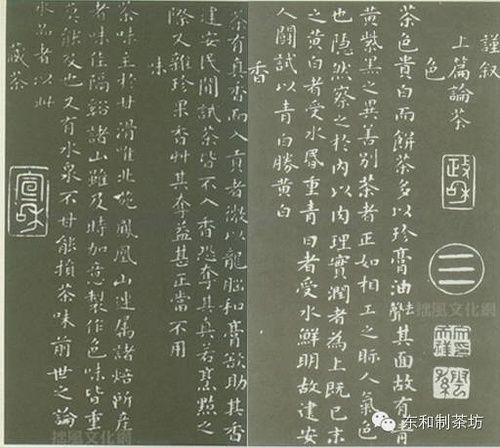 謹叙
上篇論茶
色
茶色貴白而餅茶多以珍膏油去聲其面故有青
黄紫黑之異善别茶者正如相工之眎人氣色
也隱然察之於内以肉理實潤者為上既已末
之黄白者受水昬重青白者受水鮮明故建安
人鬪試以青白勝黄白
香
茶有真香而入貢者微以龍腦和膏欲助其香
建安民間試茶皆不入香恐奪其真若烹點之
際又雜珍果香艸其奪益甚正當不用
味
茶味主於甘滑惟北苑鳳凰山連屬諸焙所産
者味佳隔谿諸山雖及時加意製作色味皆重
莫能及也又有水泉不甘能損茶味前世之論
水品者以此
藏茶
政和
宣和
东和制茶坊